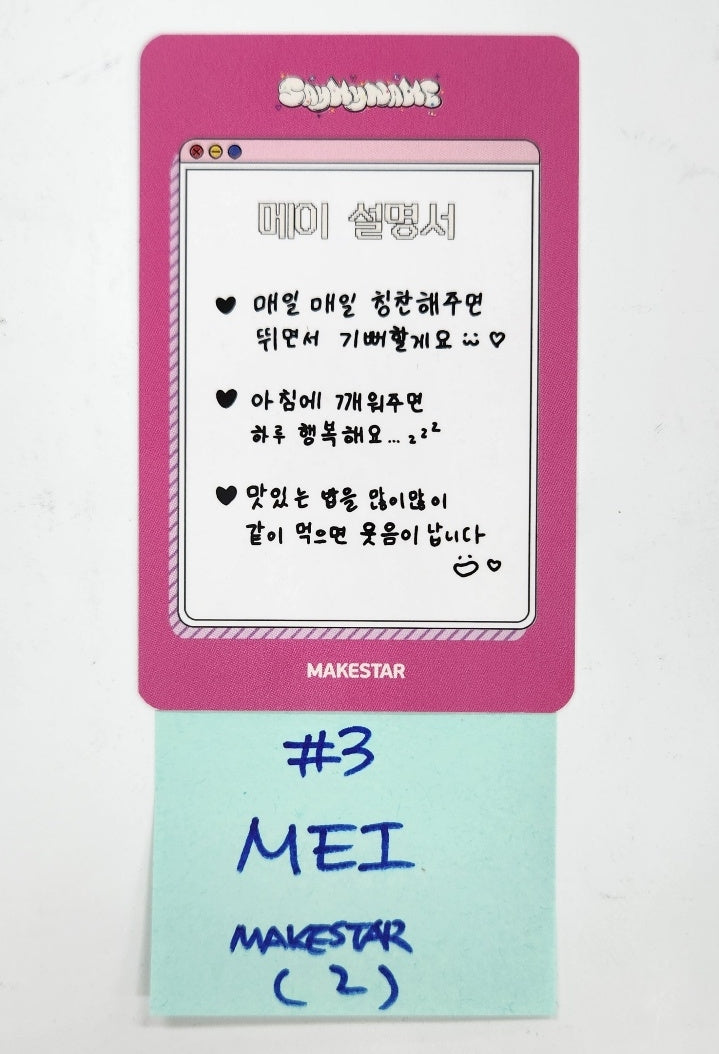 SAYMYNAME
메이 설명서
♥ 매일 매일 칭찬해주면
뛰면서 기뻐할게요 ¨̮ ♡
♥ 아침에 깨워주면
하루 행복해요... z z z
♥ 맛있는 밥을 많이많이
같이 먹으면 웃음이 납니다
♡
MAKESTAR
#3
MEI
MAKESTAR
(2)